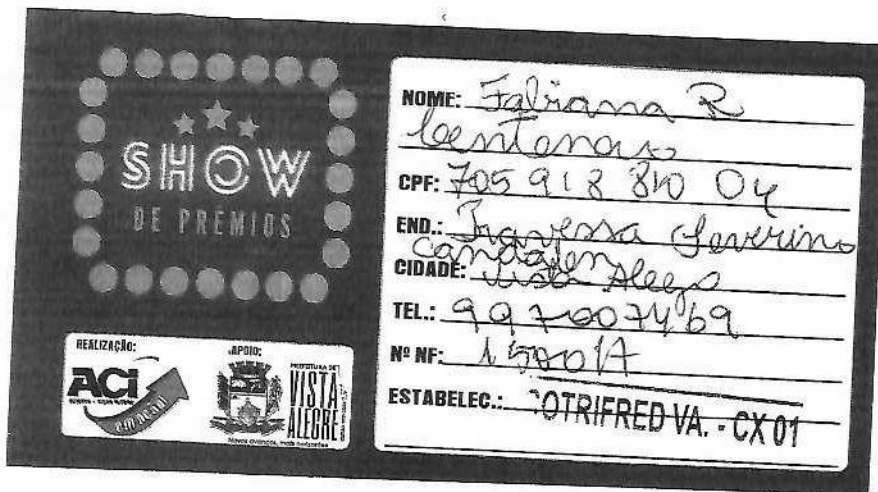 SHOW
DE PRÊMIOS
REALIZAÇÃO:
ACI
em ação!
APOIO:
PREFEITURA DE
VISTA
ALEGRE
Novos avanços, mais horizontes
NOME: Fabiana R
Centenaro
CPF: 705 918 810 04
END.: Travessa Severino
CIDADE: Vista Alegre
TEL.: 997007469
Nº NF:
ESTABELEC.: COTRIFRED VA. - CX 01